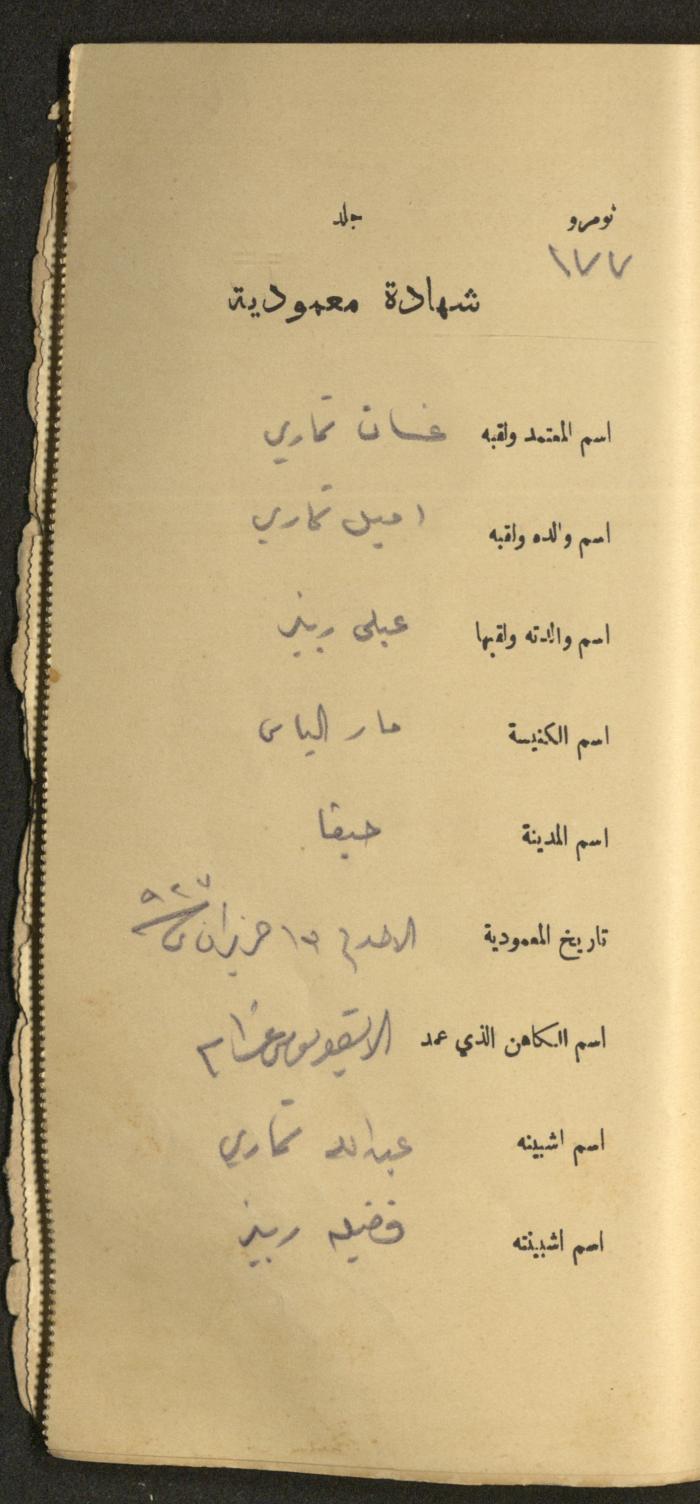 نومرو جلد
١٧٧
شهادة معمودية
اسم المعتمد ولقبه غسان تماري
اسم والده ولقبه اميل تماري
اسم والدته ولقبها عبلى ربيز
اسم الكنيسة مار الياس
اسم المدينة حيفا
تاريخ المعمودية الاحد في ١٩ حزيران سنة ٩٢٧
اسم الكاهن الذي عمد الايقونوموس
اسم اشبينه عبدالله تماري
اسم اشبينته فضيله ربيز